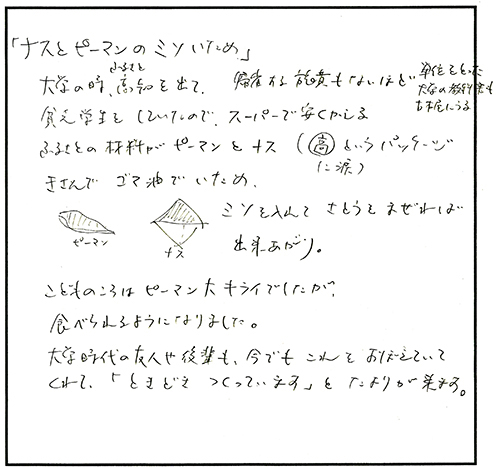 「ナスとピーマンのミソいため」
大学の時、高知を出て、帰省する旅費もないほど
ふるさと
単位をとった
大学の教科書も
古本屋にうる
貧乏学生をしていたので、スーパーで安くかえる
ふるさとの材料がピーマンとナス(高というパッケージ
に涙)
きざんでゴマ油でいため、
ミソを入れてさとうをまぜれば
出来あがり。
ピーマン
ナス
こどものころはピーマン大キライでしたが、
食べられるようになりました。
大学時代の友人や後輩も、今でもこれをおぼえていて
くれて、「ときどきつくっています」とたよりが来ます。